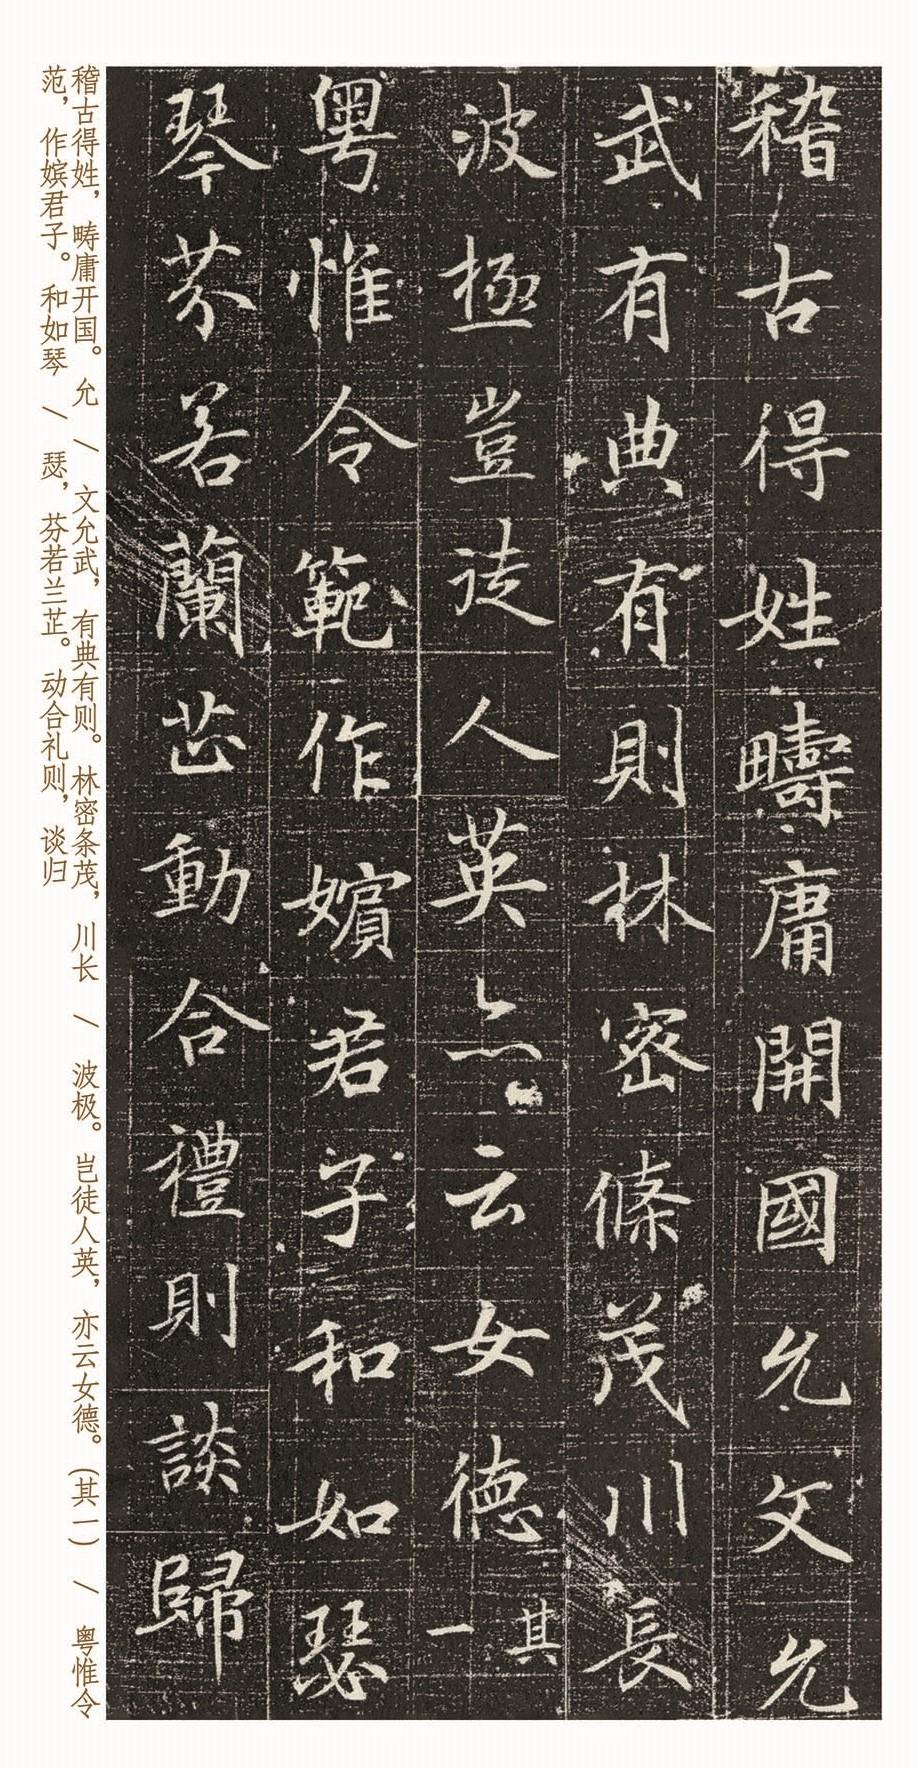 稽古得姓疇庸開國允文允
武有典有則林密條茂川長
波極豈徒人英亦云女德其一
粤惟令範作嬪君子和如瑟
琴芬若蘭芷動合禮則談歸
稽古得姓，畴庸开国。允 / 文允武，有典有则。林密条茂，川长 / 波极。岂徒人英，亦云女德。(其一) / 粤惟令
范，作嫔君子。和如琴 / 瑟，芬若兰芷。动合礼则，谈归